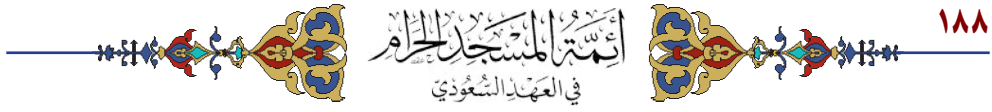 ١٨٨
أَئِمَّةُ المَسْجِدِ الحَرَامِ
فِي العَهْدِ السُّعُودِيّ